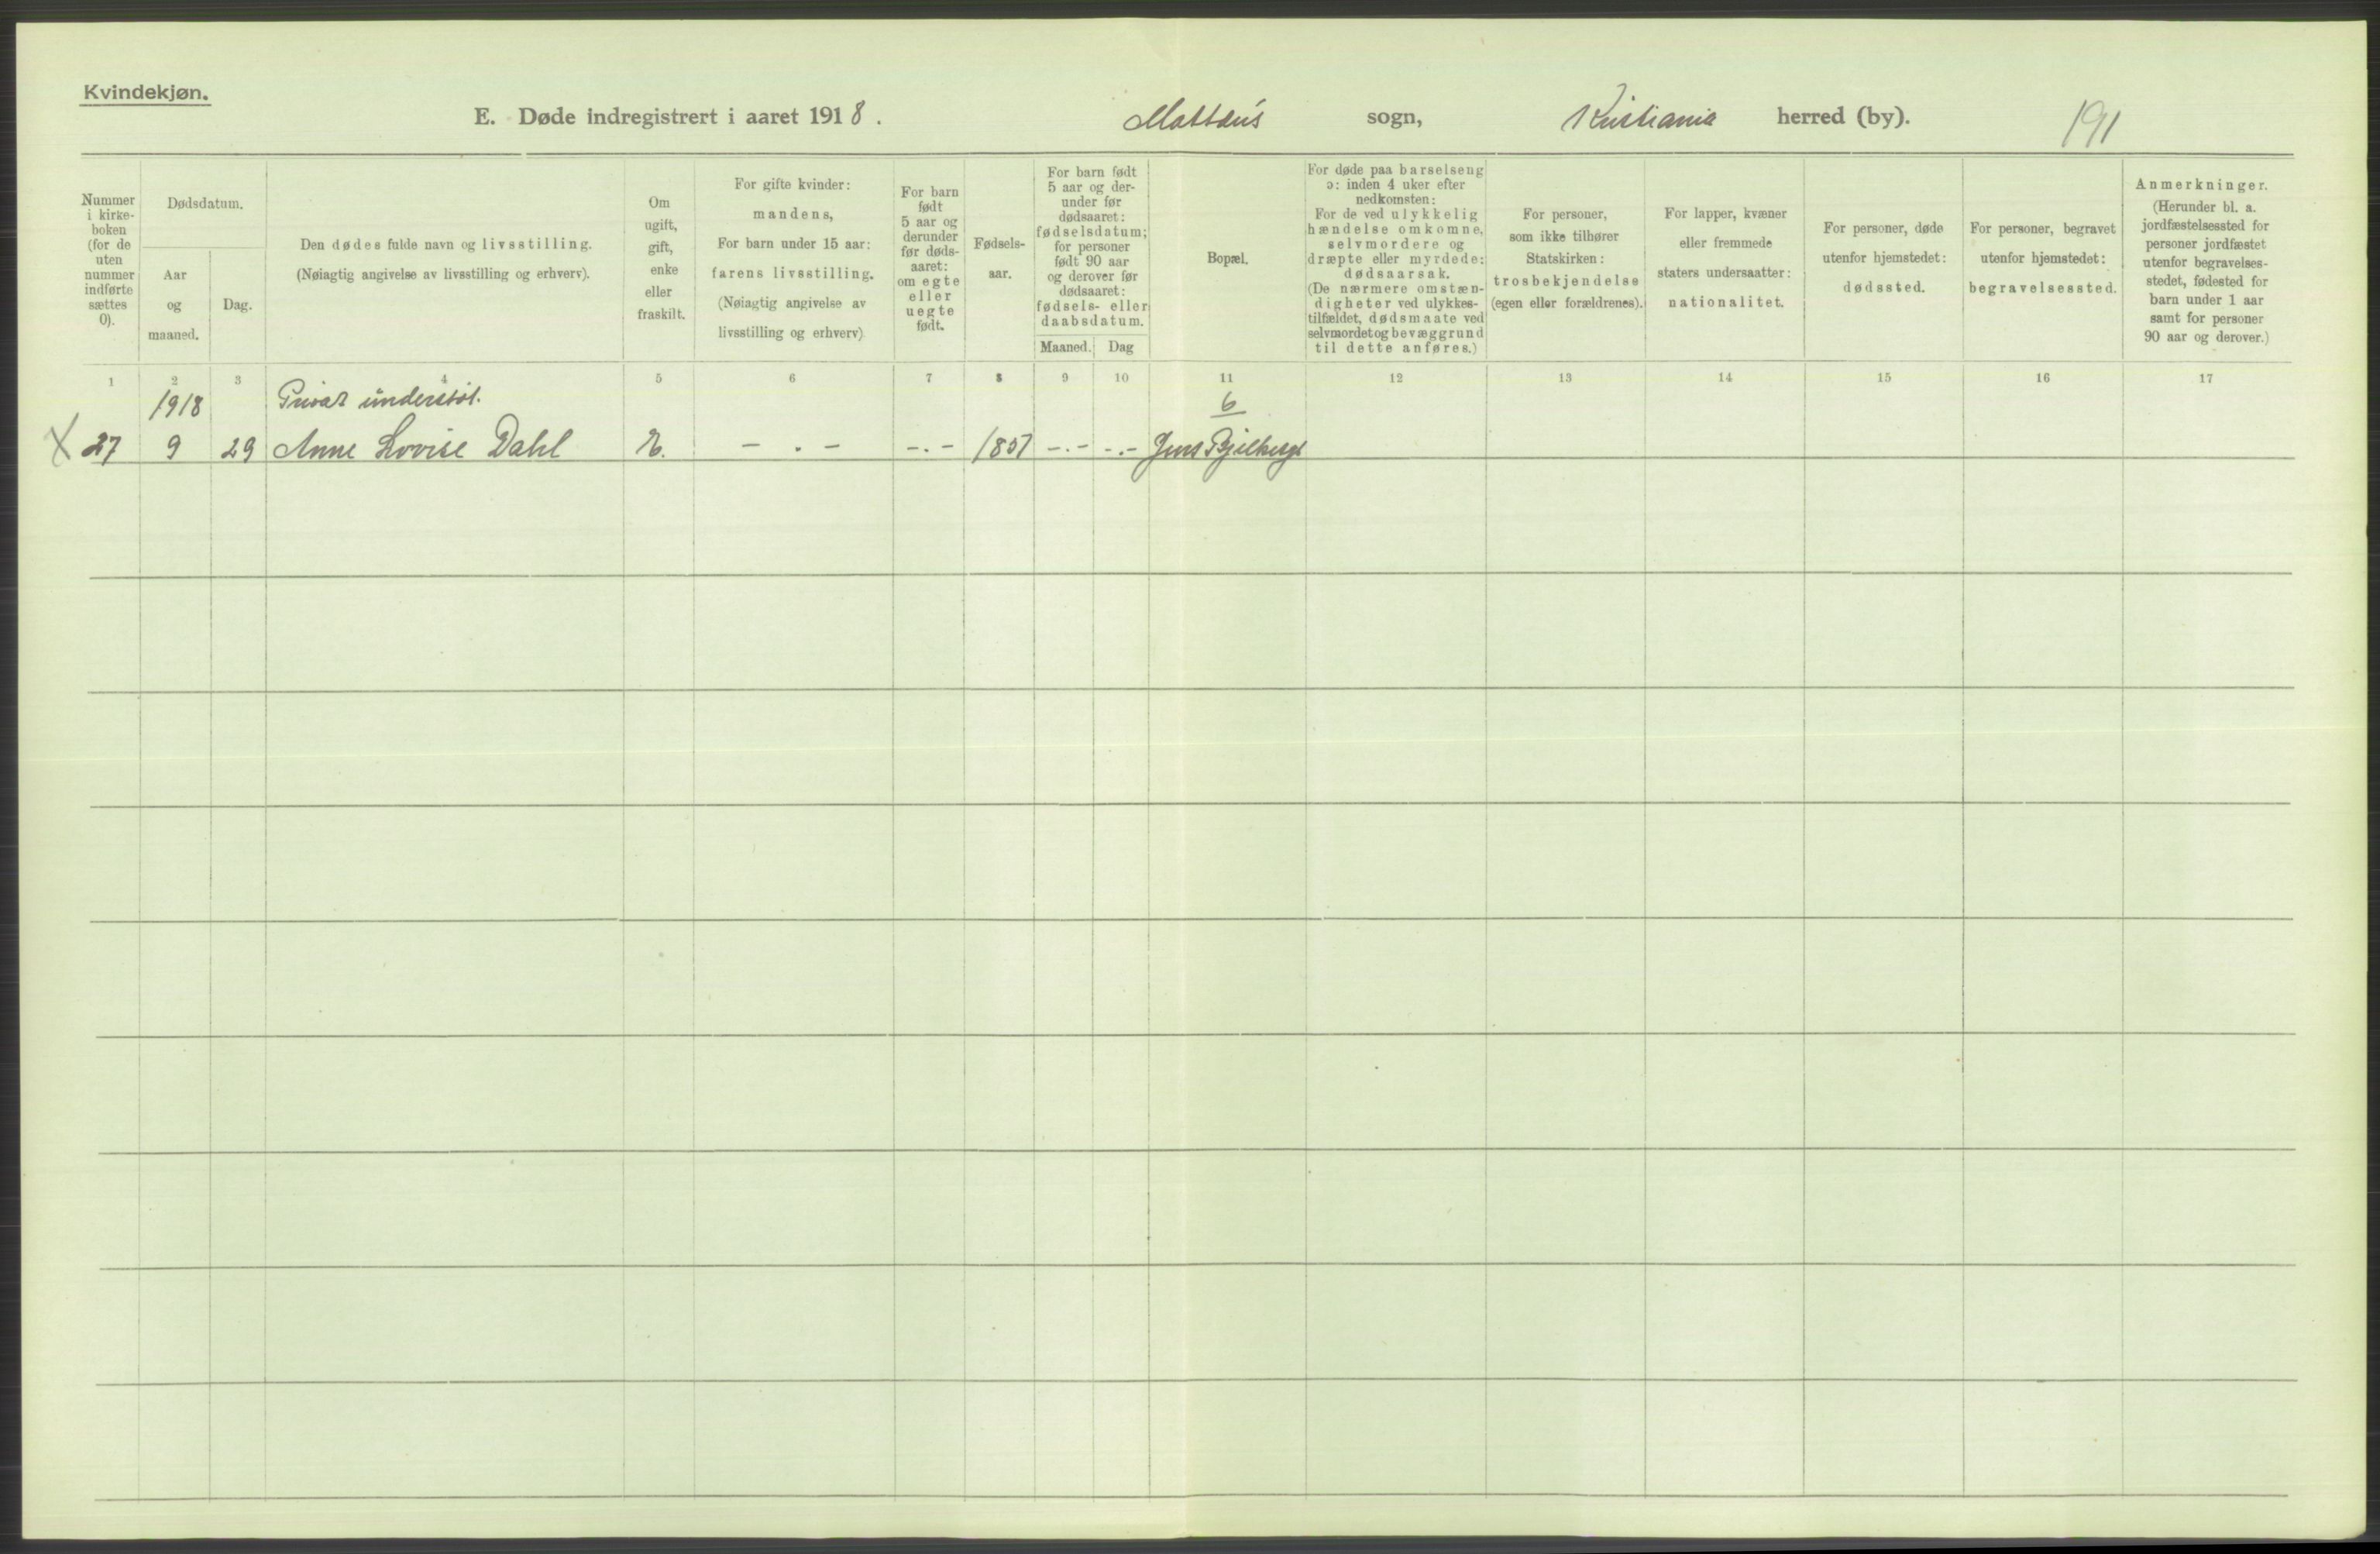 Kvindekjøn.
E. Døde indregistrert i aaret 1918. Mattæus sogn, Kristiania herred (by). 191
Nummer i kirkeboken (for de uten nummer indførte sættes 0).
Dødsdatum.
Aar og maaned.
Dag.
Den dødes fulde navn og livsstilling.
(Nøiagtig angivelse av livsstilling og erhverv).
Om ugift, gift, enke eller fraskilt.
For gifte kvinder: mandens,
For barn under 15 aar: farens livsstilling.
(Nøiagtig angivelse av livsstilling og erhverv)
For barn født 5 aar og derunder før dødsaaret: om egte eller uegte født.
Fødselsaar.
For barn født 5 aar og derunder før dødsaaret: fødselsdatum; for personer født 90 aar og derover før dødsaaret: fødsels- eller daabsdatum.
Maaned. Dag
Bopæl.
For døde paa barselseng ɔ: inden 4 uker efter nedkomsten: For de ved ulykkelig hændelse omkomne, selvmordere og dræpte eller myrdede: dødsaarsak. (De nærmere omstændigheter ved ulykkestilfældet, dødsmaate ved selvmordet og bevæggrund til dette anføres.)
For personer, som ikke tilhører Statskirken: trosbekjendelse (egen eller forældrenes).
For lapper, kvæner eller fremmede staters undersaatter: nationalitet.
For personer, døde utenfor hjemstedet: dødssted.
For personer, begravet utenfor hjemstedet: begravelsessted.
Anmerkninger.
(Herunder bl. a. jordfæstelsessted for personer jordfæstet utenfor begravelsesstedet, fødested for barn under 1 aar samt for personer 90 aar og derover.)
1 2 3 4 5 6 7 8 9 10 11 12 13 14 15 16 17
1918 Privat understøt. 6
X 27 9 29 Anne Lovise Dahl E. - . - -.- 1837 -.- -.- Jens Bjelkesgt